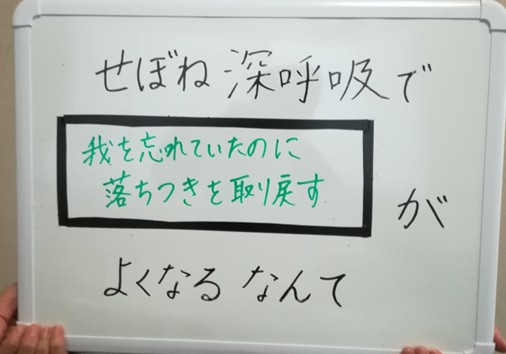 せぼね深呼吸で
我を忘れていたのに
落ちつきを取り戻す
が
よくなるなんて